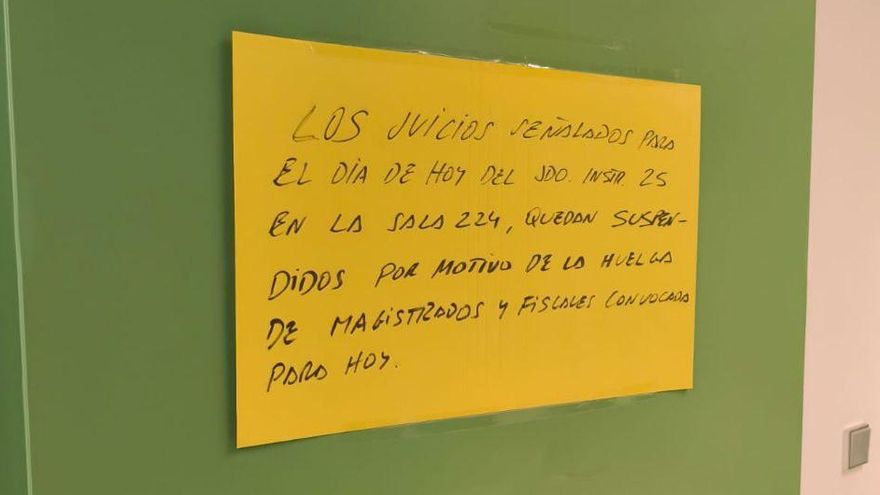 LOS JUICIOS SEÑALADOS PARA
EL DÍA DE HOY DEL JDO. INSTR. 25
EN LA SALA 224, QUEDAN SUSPEN-
DIDOS POR MOTIVO DE LA HUELGA
DE MAGISTRADOS Y FISCALES CONVOCADA
PARA HOY.